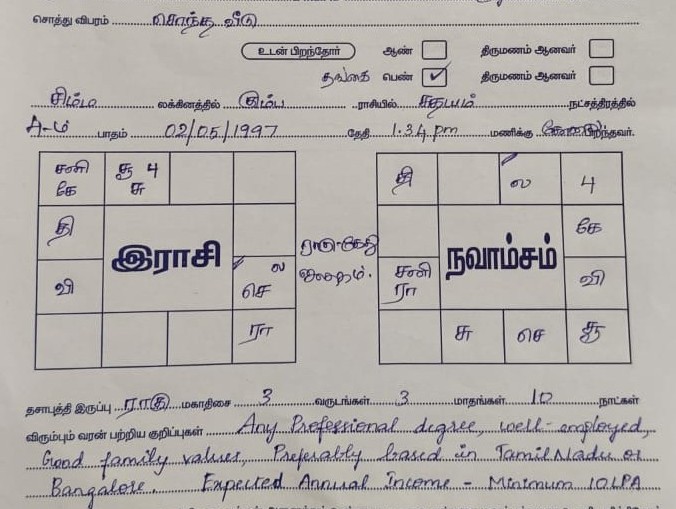 சொத்து விபரம் சொந்த வீடு
உடன் பிறந்தோர் ஆண் திருமணம் ஆனவர்
தங்கை பெண் ✓ திருமணம் ஆனவர்
சிம்ம லக்கினத்தில் கும்ப ராசியில் சதயம் நட்சத்திரத்தில்
4-ம் பாதம் 02/05/1997 தேதி 1.34 pm மணிக்கு பிறந்தவர்.
சனி கே
சூ 4 சு
தி
வி
இராசி
ல செ
ரா
ராகு-கேது
தி
ல
4
கே
சனி ரா
நவாம்சம்
வி
சு
செ
சூ
தசாபுத்தி இருப்பு ராகு மகாதிசை 3 வருடங்கள் 3 மாதங்கள் 10 நாட்கள்
விரும்பும் வரன் பற்றிய குறிப்புகள் Any Professional degree, well-employed,
Good family values, Preferably based in TamilNadu or
Bangalore. Expected Annual Income - Minimum 10LPA